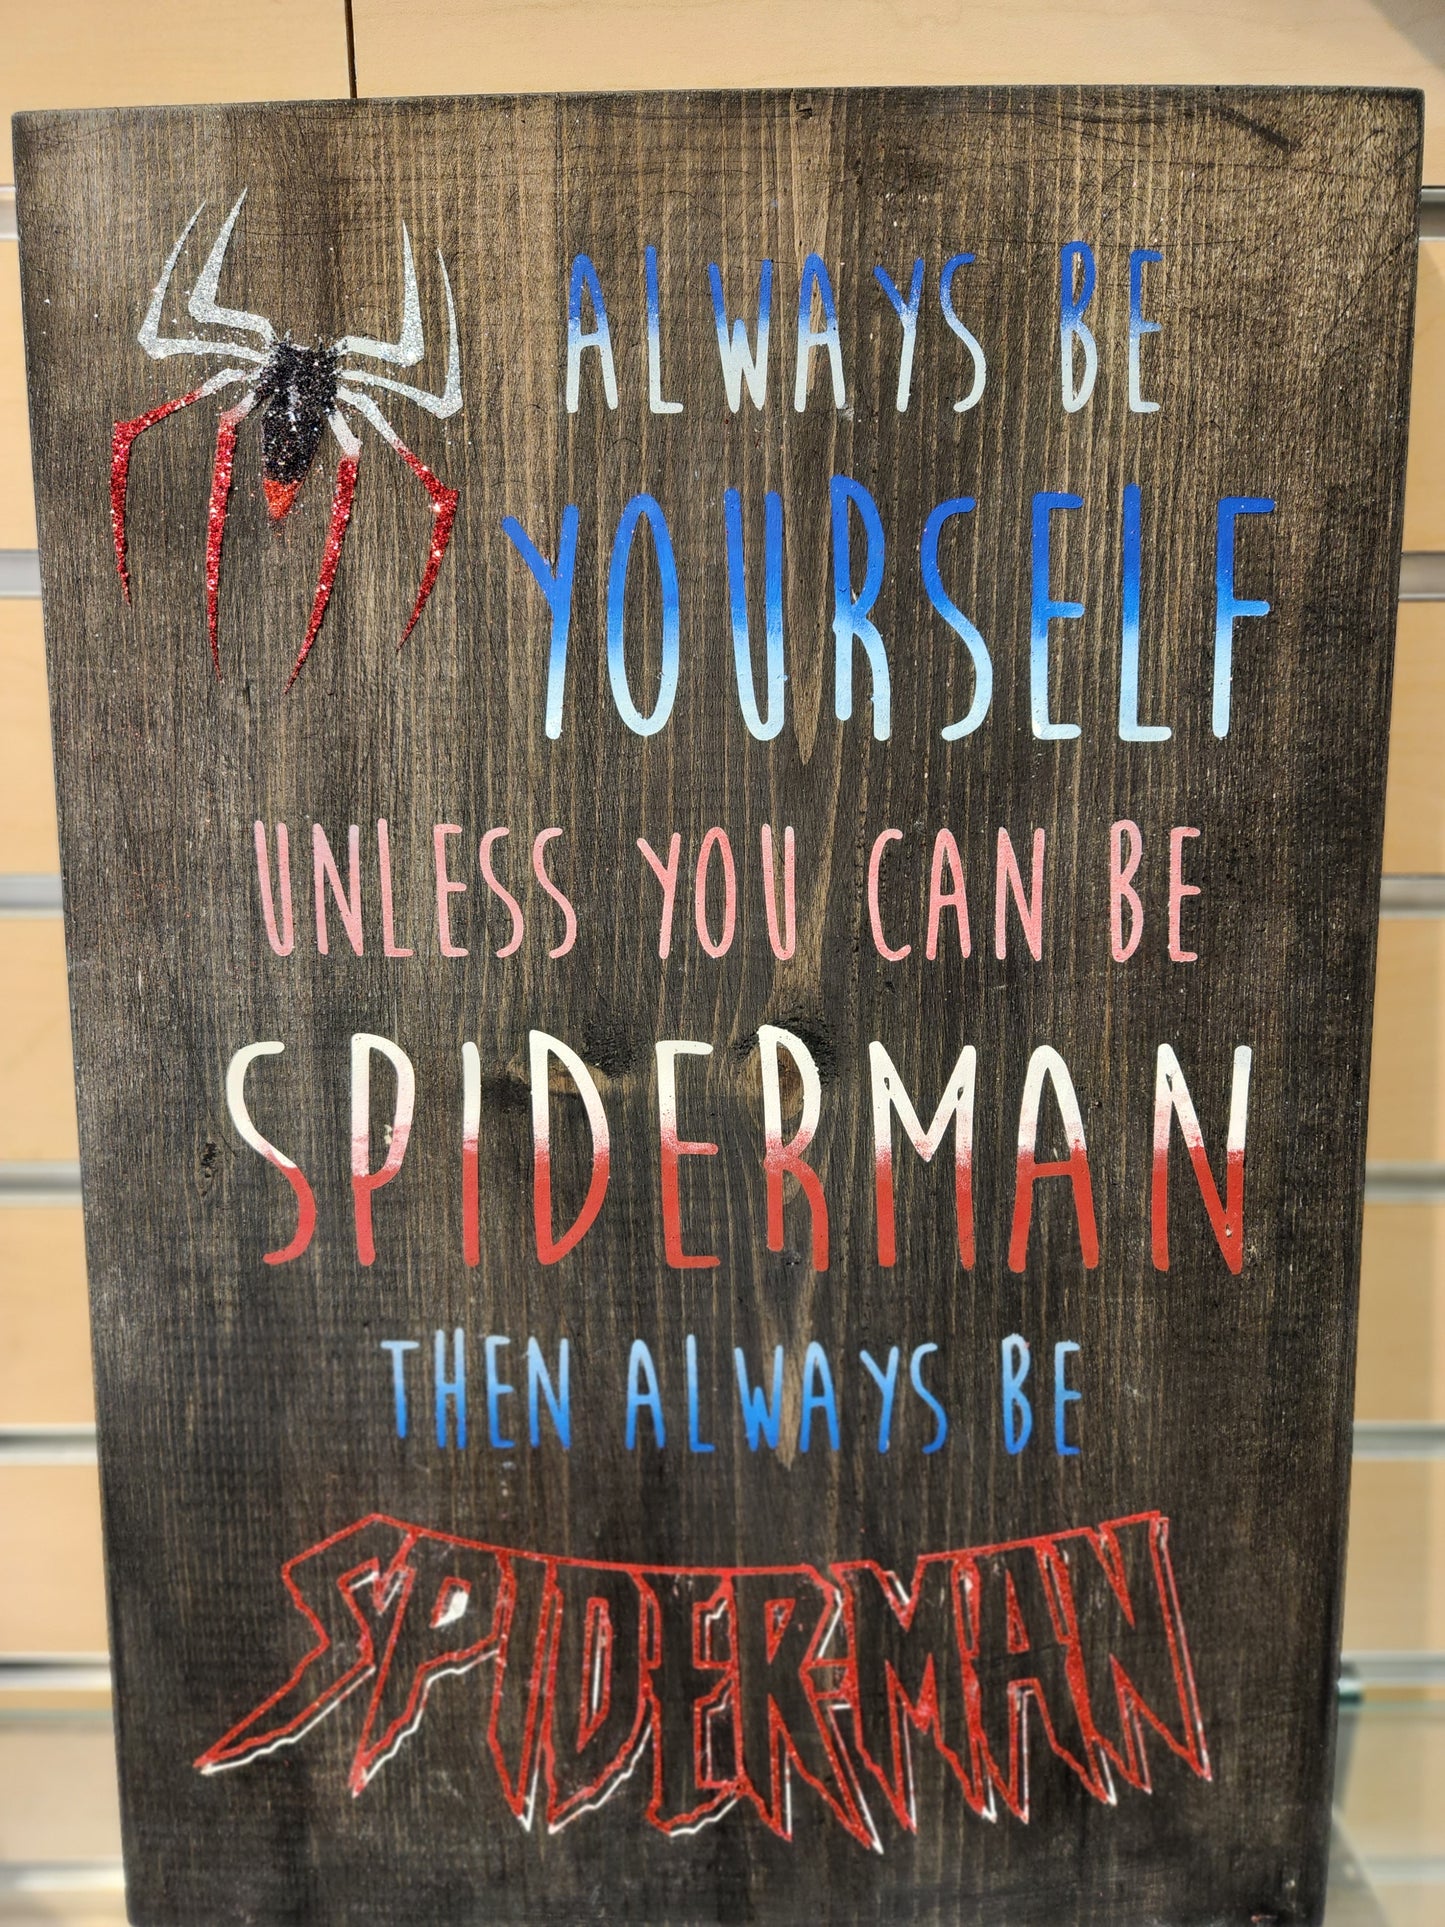 ALWAYS BE
YOURSELF
UNLESS YOU CAN BE
SPIDERMAN
THEN ALWAYS BE
SPIDER-MAN